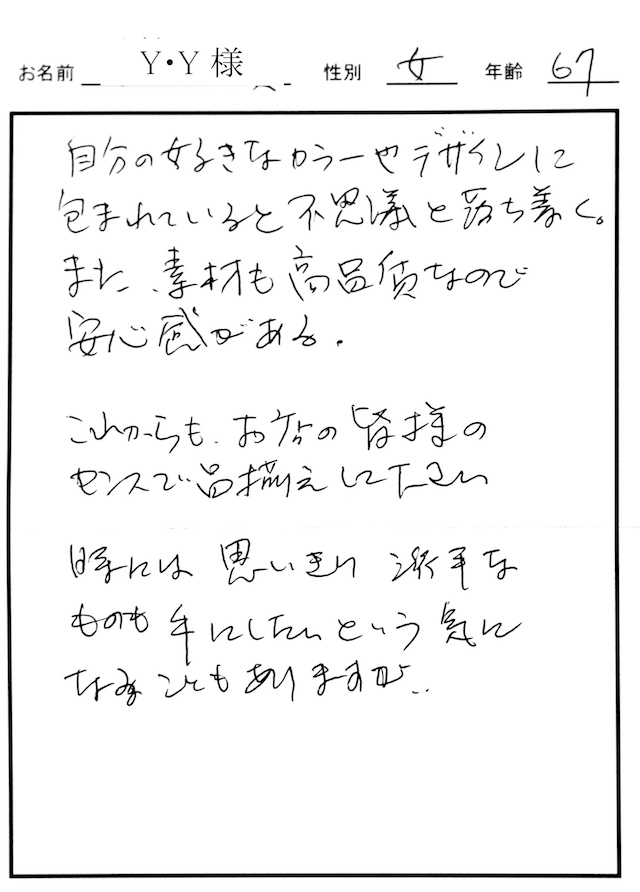 お名前 Y・Y 様 性別 女 年齢 67
自分の好きなカラーやデザインに
包まれていると不思議と落ち着く。
また、素材も高品質なので
安心感がある.
これからも、お店の皆様の
センスで品揃えして下さい
時には思いきり派手な
ものも手にしたいという気に
なることもありますが..